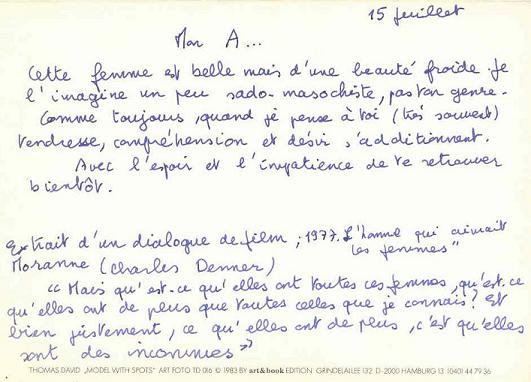 15 juillet
Mon A...
Cette femme est belle mais d'une beauté froide. Je
l'imagine un peu sado-masochiste, pas ton genre.
Comme toujours, quand je pense à toi (très souvent)
tendresse, compréhension et désir s'additionnent.
Avec l'espoir et l'impatience de te retrouver
bientôt.
Extrait d'un dialogue de film ; 1977. L'homme qui aimait
les femmes"
Moranne (Charles Denner)
"Mais qu'est-ce qu'elles ont toutes ces femmes, qu'est-ce
qu'elles ont de plus que toutes celles que je connais? Et
bien justement, ce qu'elles ont de plus, c'est qu'elles
sont des inconnues"
THOMAS DAVID „MODEL WITH SPOTS" ART FOTO TD 016 © 1983 BY art&book EDITION GRINDELALLEE 132 D-2000 HAMBURG 13 (040) 44 79 36